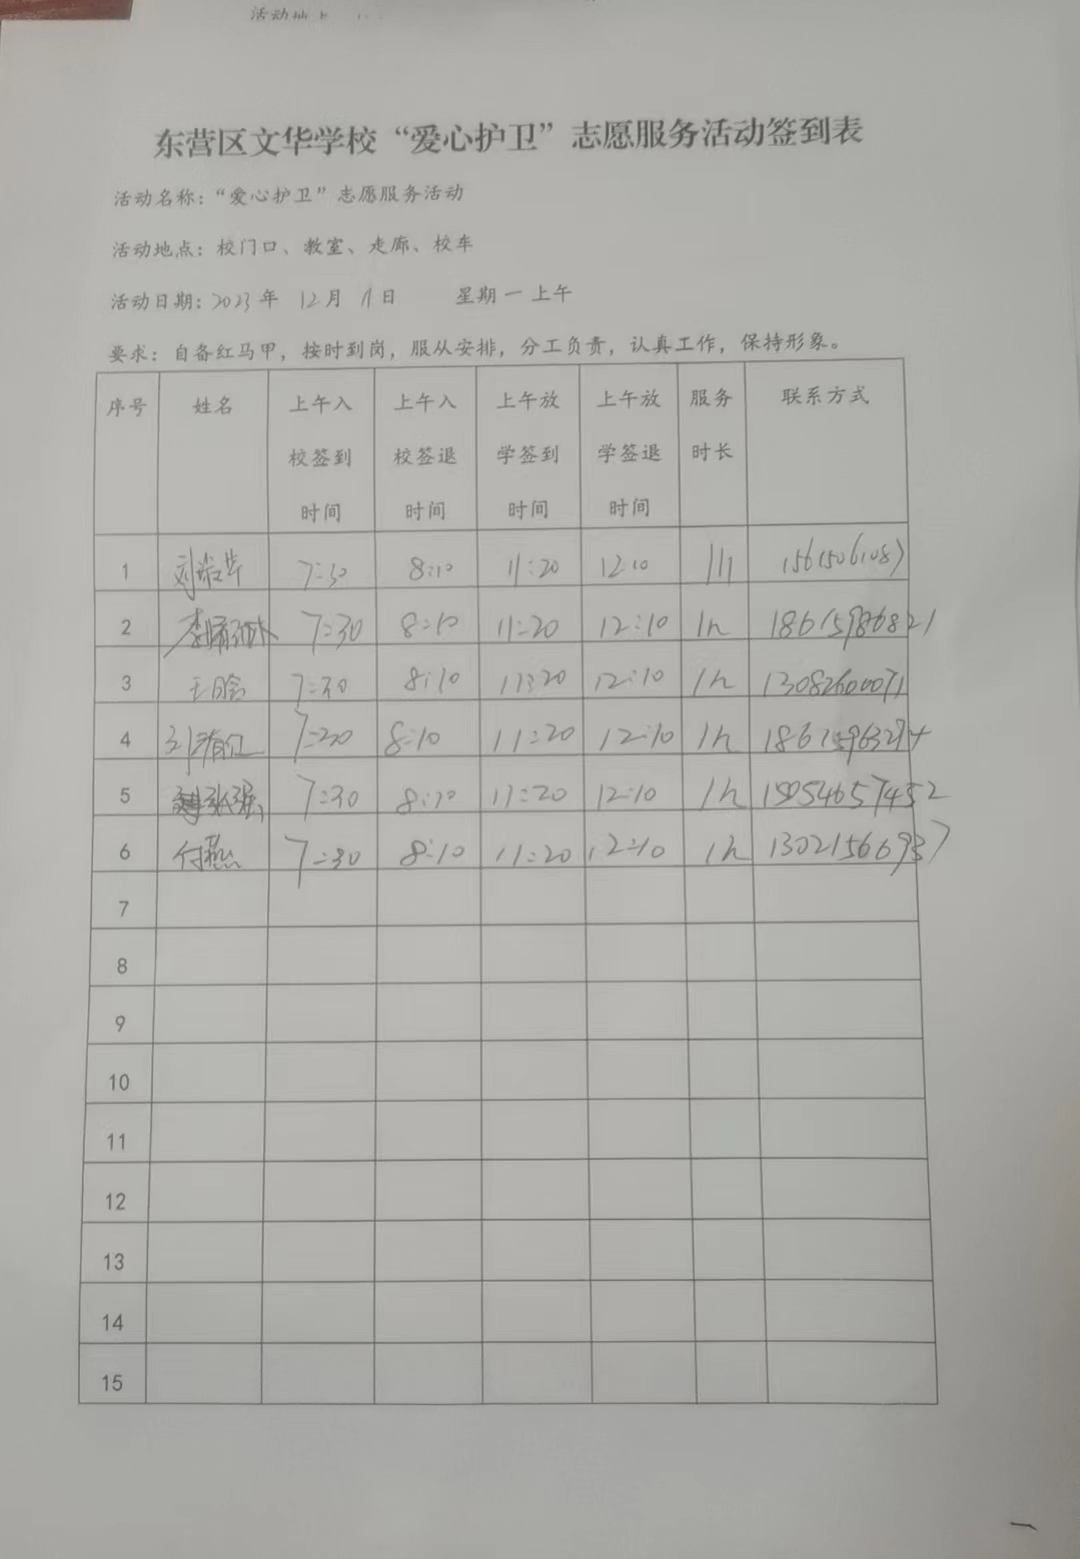 东营区文华学校“爱心护卫”志愿服务活动签到表
活动名称：“爱心护卫”志愿服务活动
活动地点：校门口、教室、走廊、校车
活动日期：2023年 12月 11日 星期一 上午
要求：自备红马甲，按时到岗，服从安排，分工负责，认真工作，保持形象。
序号 姓名 上午入校签到时间 上午入校签退时间 上午放学签到时间 上午放学签退时间 服务时长 联系方式
1 7:30 8:10 11:20 12:10 15615061087
2 7:30 8:10 11:20 12:10 1h 18615986821
3 王晗 7:30 8:10 11:20 12:10 1h 13082600071
4 8:10 11:20 12:10 1h
5 7:30 8:10 11:20 12:10 1h 15054657452
6 付燕 7:30 8:10 11:20 12:10 1h 13021566937
7
8
9
10
11
12
13
14
15